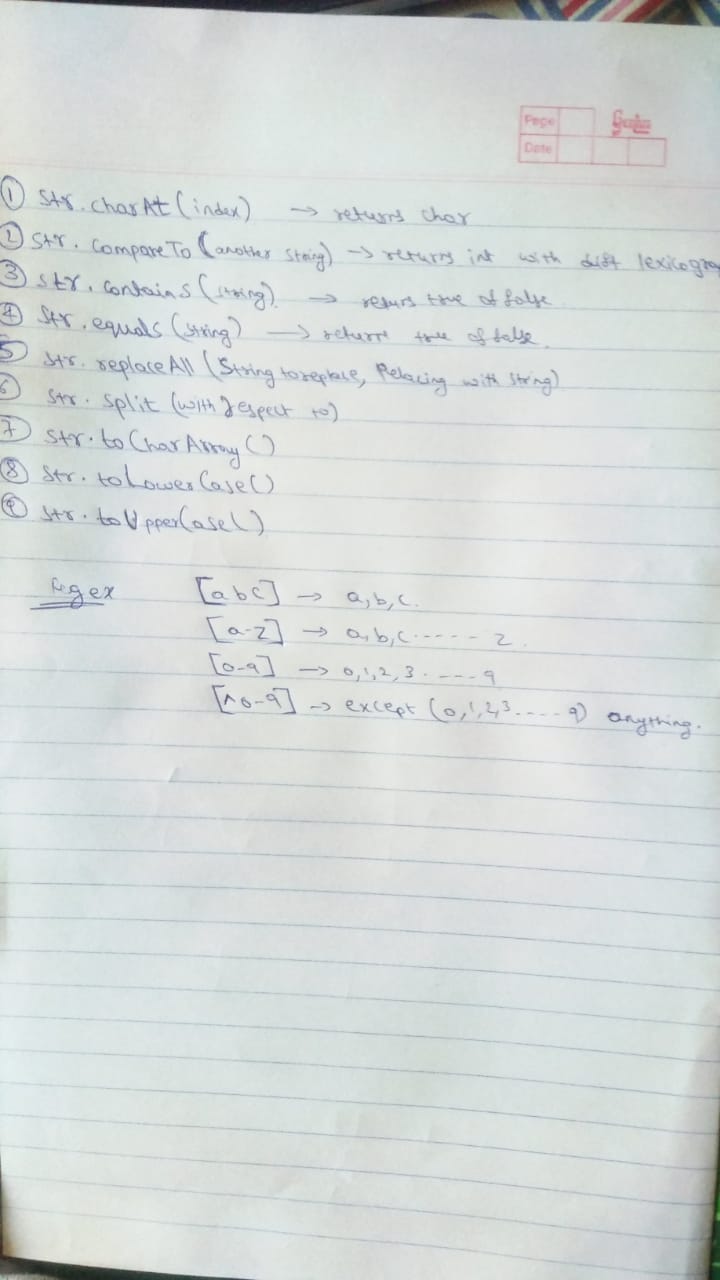 Page
Date
① Str. charAt (index) → returns char
② Str. CompareTo (another string) → returns int with diff lexicograp
③ str. contains (string) → returns true of false
④ Str. equals (string) → return true of false.
⑤ str. replaceAll (String to replace, Relacing with string)
⑥ str. split (with respect to)
⑦ str. to CharArray ()
⑧ str. toLowerCase()
⑨ str. toUpperCase()
Regex [abc] → a, b, c.
[a-z] → a, b, c ----- z.
[0-9] → 0, 1, 2, 3 . ---- 9
[^0-9] → except (0, 1, 2, 3 .... 9) anything.